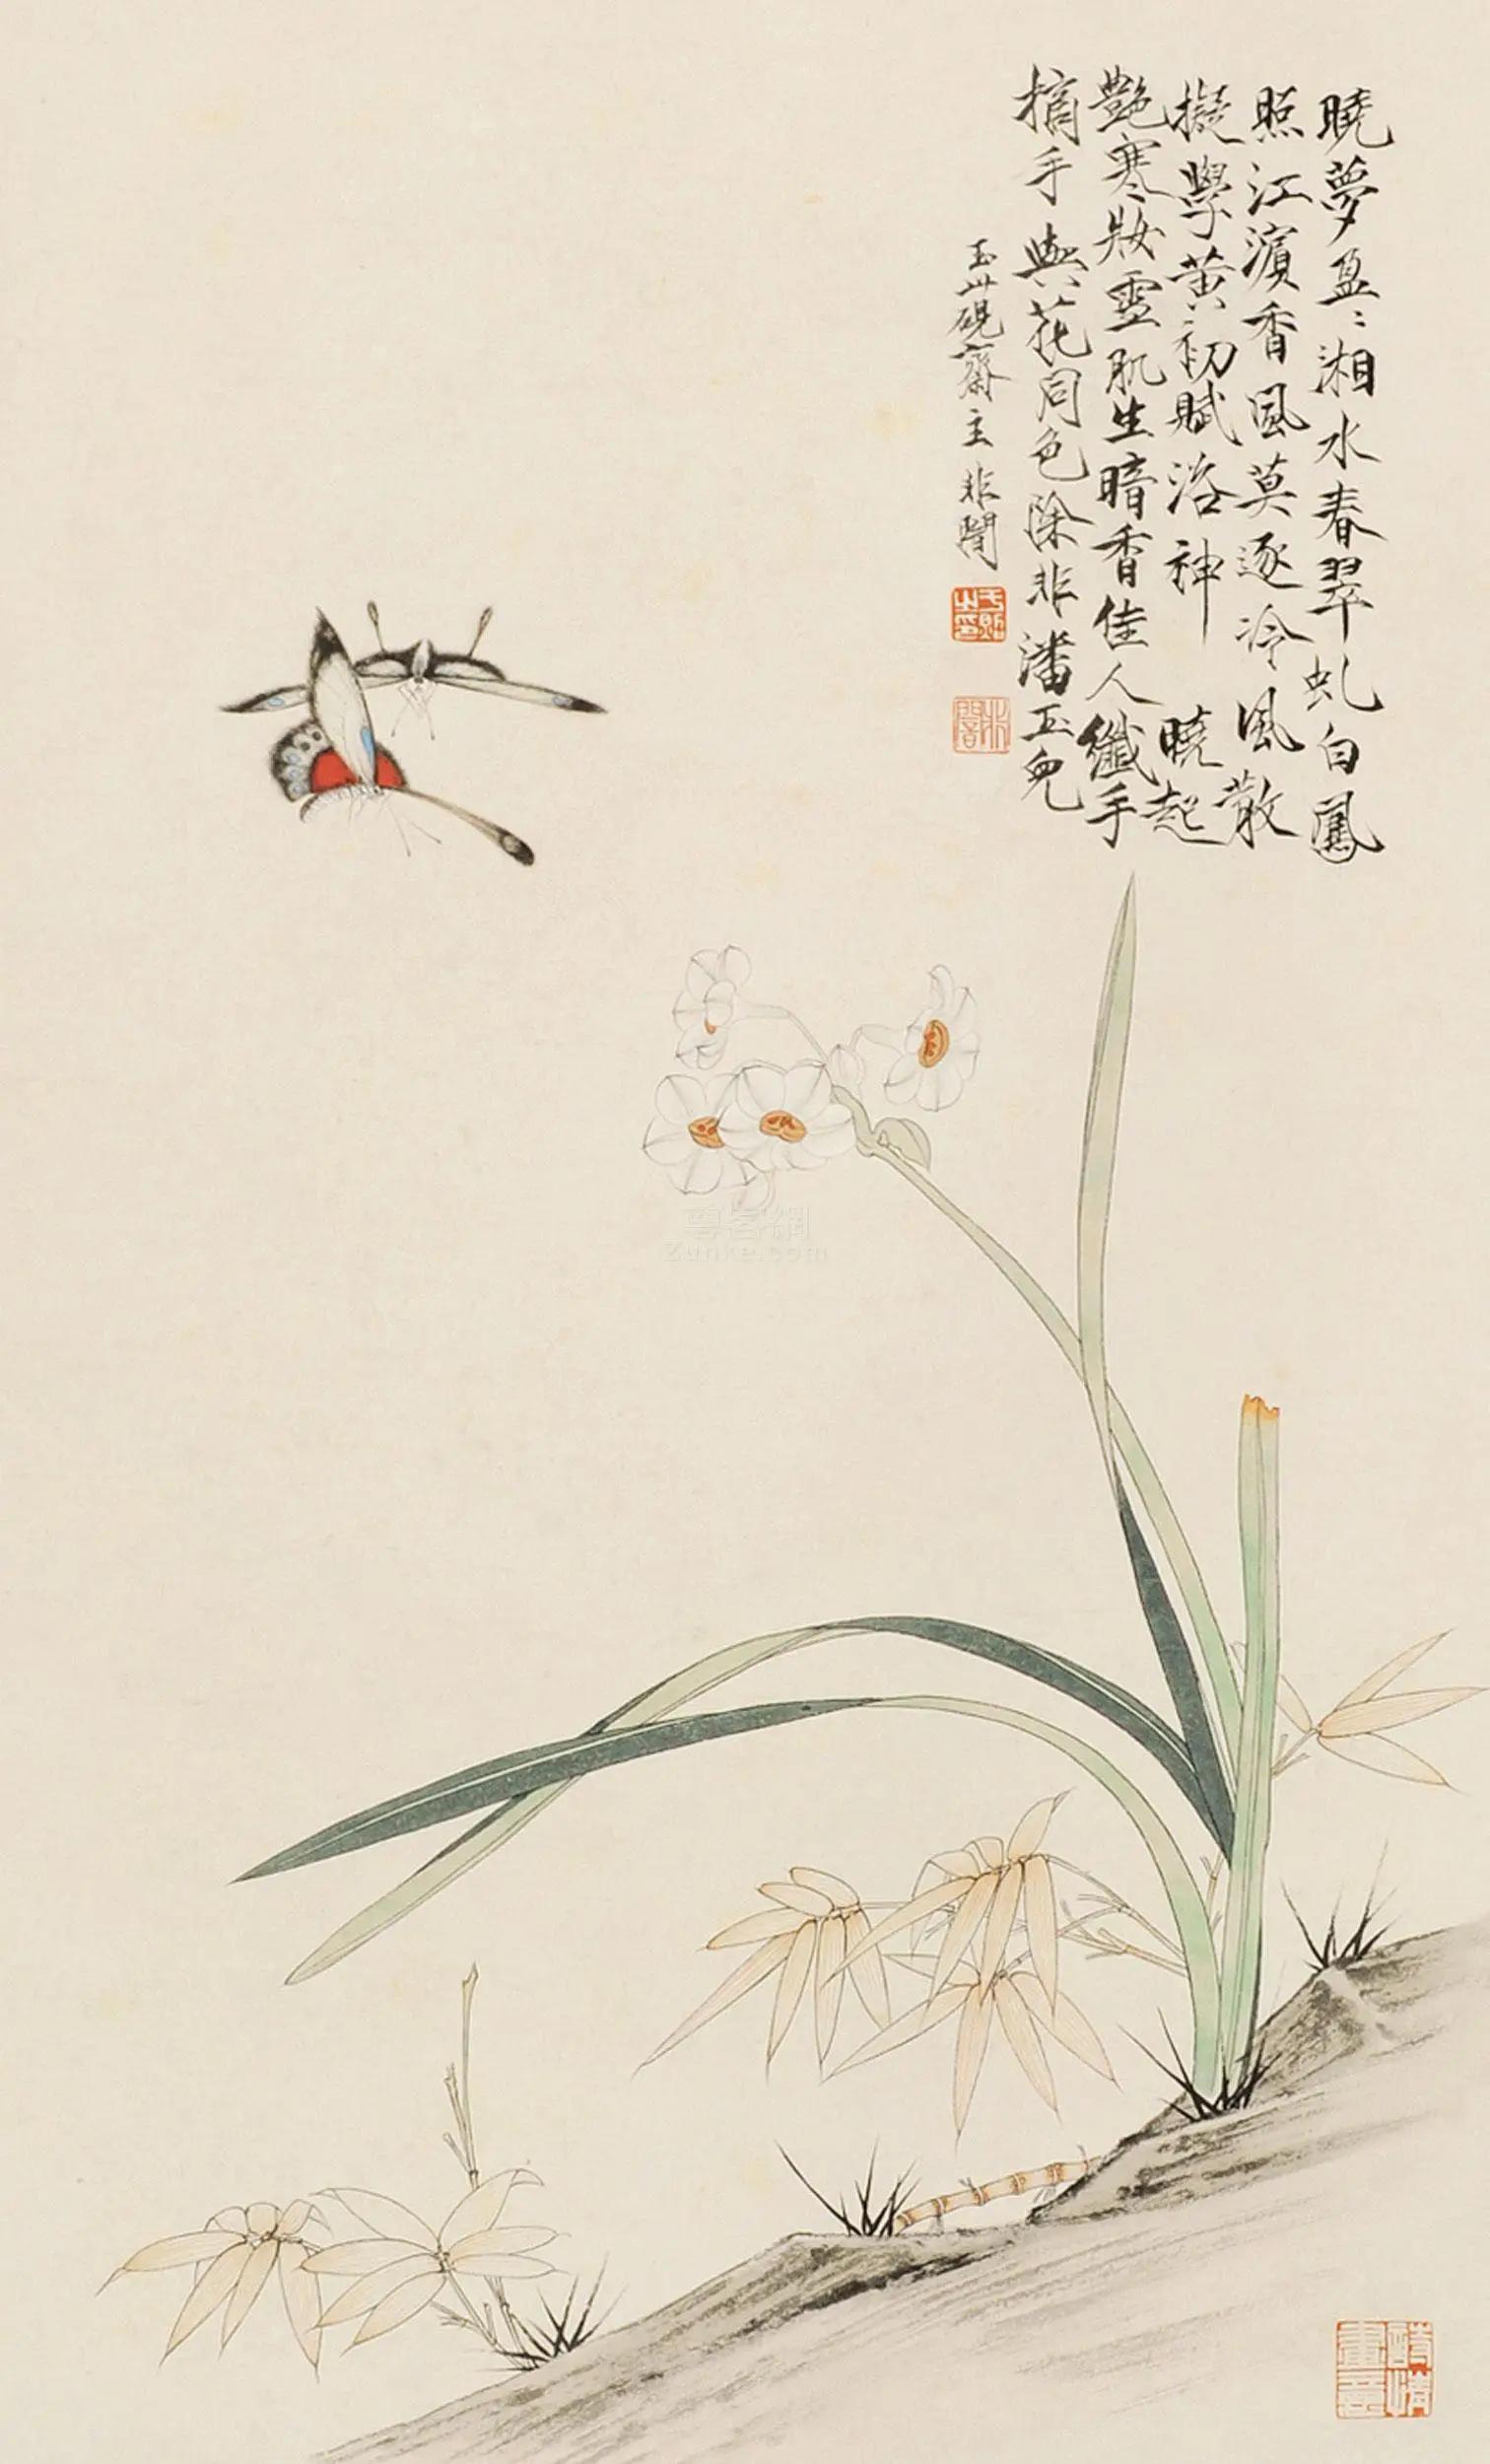 曉夢盈〻湘水春翠虬白鳳
照江濱香風莫逐泠風散
擬學黃初賦洛神　曉起
艷寒妝靈肌生暗香佳人纖手
摘手與花同色除非潘玉兒
玉山硯齋主非闇
于照之印
非闇
尊客網
Zunke.com
詩情畫意